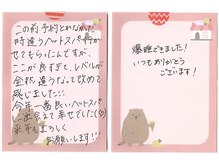 この前予約とれなかた
時違うヘッドスパ再び
せてもらったんですが、
ここが良すぎて、レベルが
全然違うなって改めて
感じました:::
今年一番良いヘッドスパ
に出会えて幸せでした(^^)
来年も宜しく
お願いします!!
爆睡できました!
いつもありがとう
ございます!